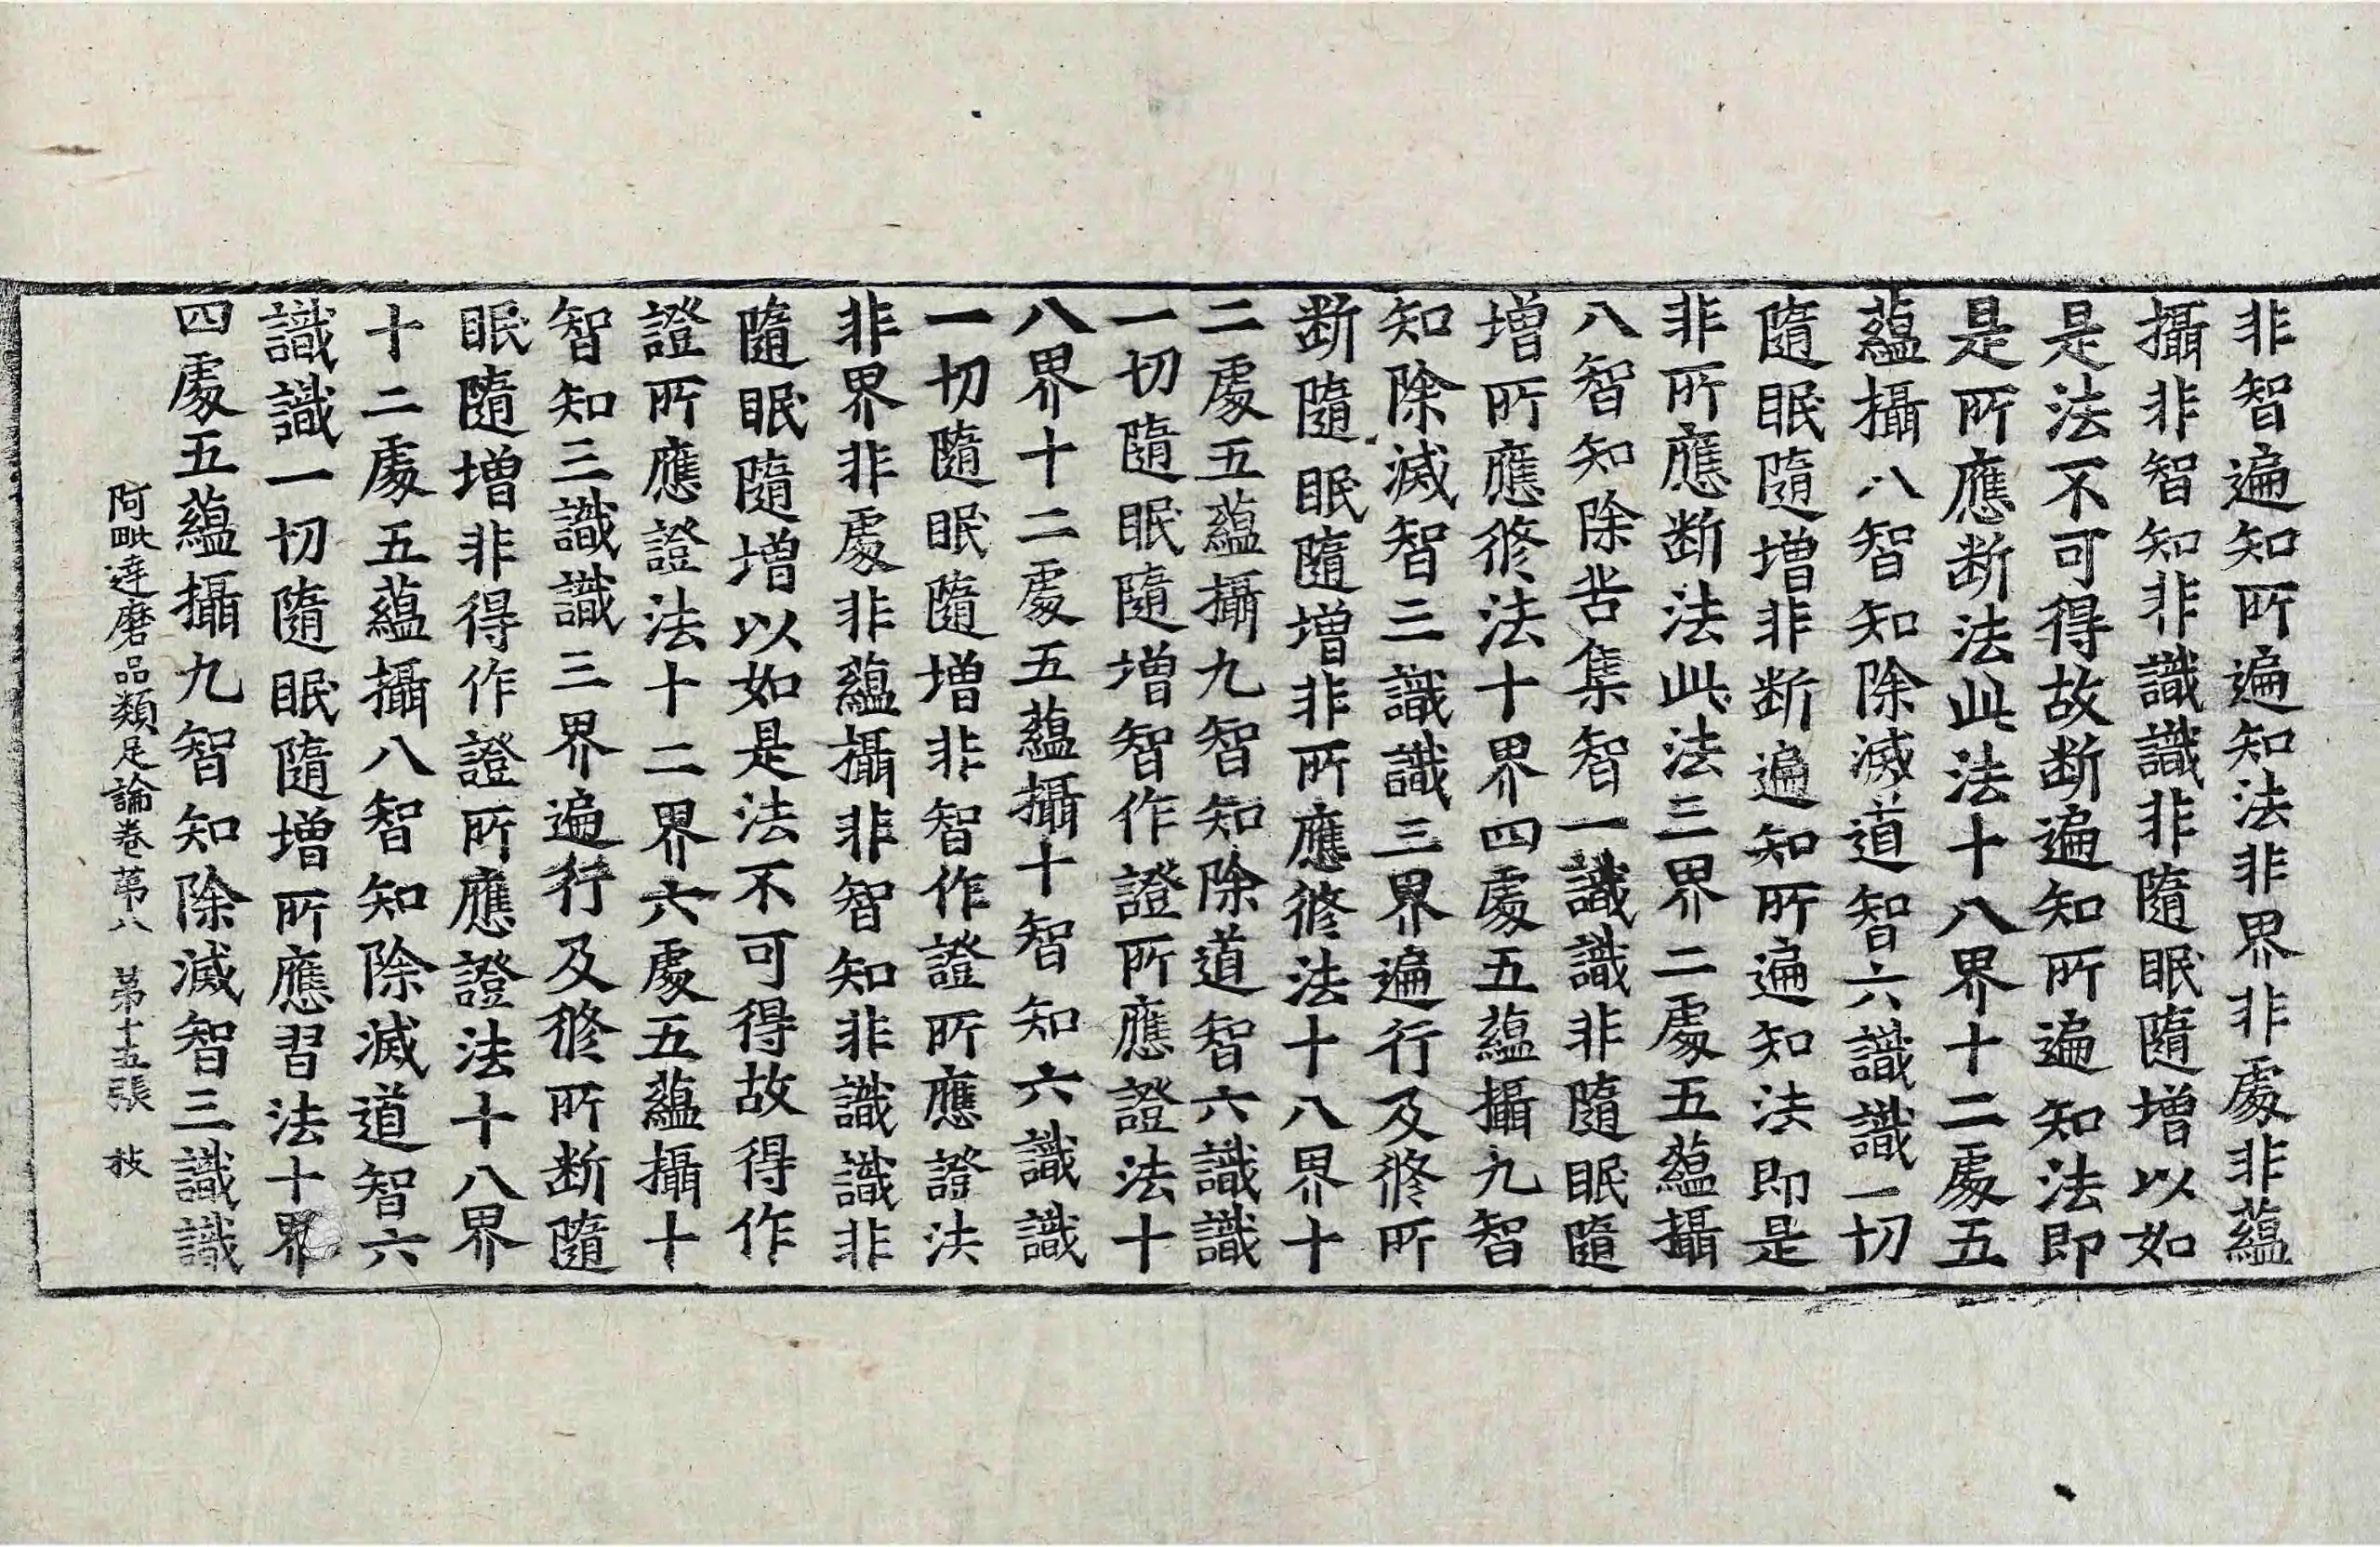 非智遍知所遍知法非界非處非蘊
攝非智知非識識非隨眠隨增以如
是法不可得故断遍知所遍知法即
是所應断法此法十八界十二處五
蘊攝八智知除滅道智六識識一切
隨眠隨增非断遍知所遍知法即是
非所應断法此法三界二處五蘊攝
八智知除苦集智一識識非隨眠隨
增所應修法十界四處五蘊攝九智
知除滅智三識識三界遍行及修所
断隨眠隨增非所應修法十八界十
二處五蘊攝九智知除道智六識識
一切隨眠隨增智作證所應證法十
八界十二處五蘊攝十智知六識識
一切隨眠隨增非智作證所應證法
非界非處非蘊攝非智知非識識非
隨眠隨增以如是法不可得故得作
證所應證法十二界六處五蘊攝十
智知三識識三界遍行及修所断隨
眠隨增非得作證所應證法十八界
十二處五蘊攝八智知除滅道智六
識識一切隨眠隨增所應習法十界
四處五蘊攝九智知除滅智三識識
阿毗達磨品類足論卷苐八 苐十五張 𢪛